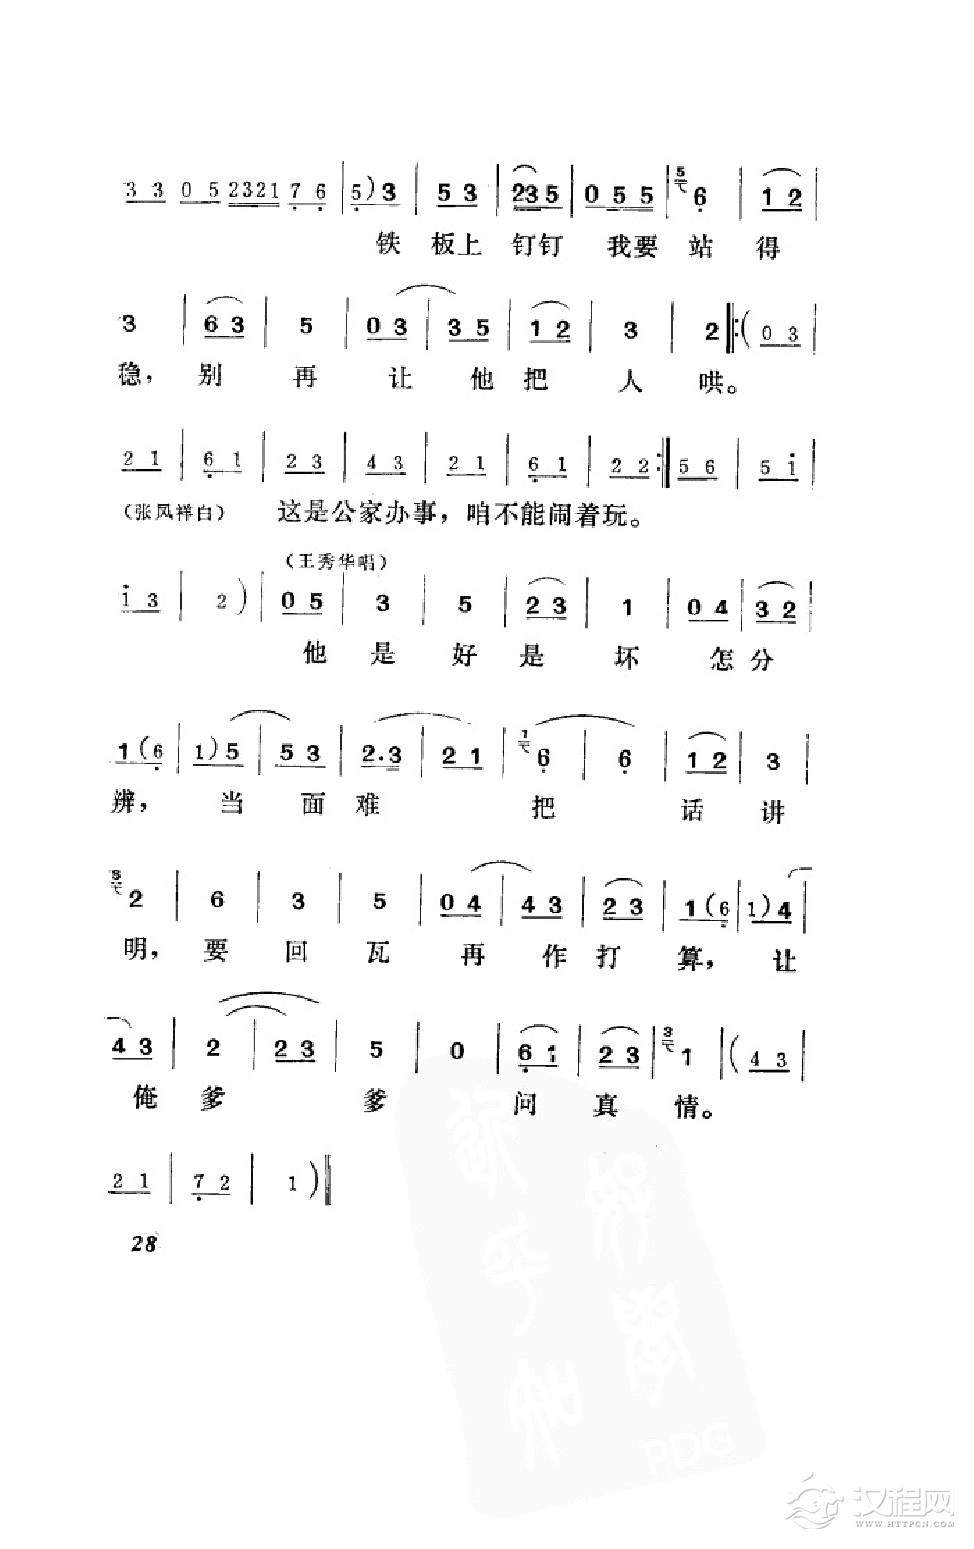 3 3 0 5 2321 7 6 | 5) 3 | 5 3 | 235 | 0 5 5 | 5 6 | 1 2 |
铁 板上 钉钉 我要 站 得
3 | 6 3 | 5 | 0 3 | 3 5 | 1 2 | 3 | 2 ‖: ( 0 3 |
稳， 别 再 让 他 把 人 哄。
2 1 | 6 1 | 2 3 | 4 3 | 2 1 | 6 1 | 2 2 :‖ 5 6 | 5 i |
（张凤祥白） 这是公家办事，咱不能闹着玩。
（王秀华唱）
i 3 | 2 ) | 0 5 | 3 | 5 | 2 3 | 1 | 0 4 | 3 2 |
他 是 好 是 坏 怎 分
1 ( 6 | 1 ) 5 | 5 3 | 2 . 3 | 2 1 | 1 6 | 6 | 1 2 | 3 |
辨， 当 面 难 把 话 讲
3 2 | 6 | 3 | 5 | 0 4 | 4 3 | 2 3 | 1 ( 6 | 1 ) 4 |
明， 要 回 瓦 再 作 打 算， 让
4 3 | 2 | 2 3 | 5 | 0 | 6 1 | 2 3 | 3 1 | ( 4 3 |
俺 爹 爹 问 真 情。
2 1 | 7 2 | 1 ) ‖
28
PDG
汉程网
WWW.HTTPCN.COM